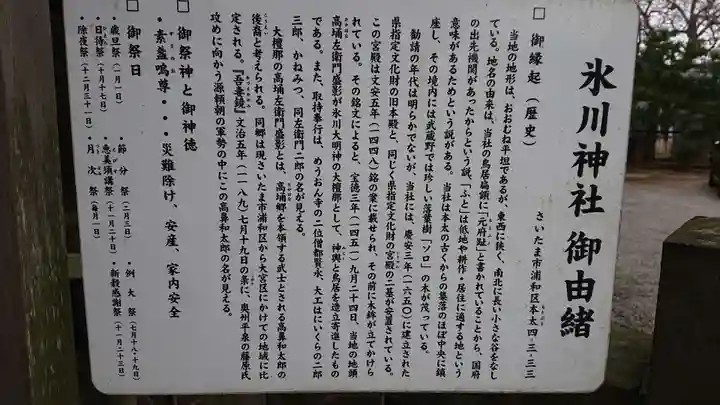 氷川神社 御由緒
さいたま市浦和区本太四・三・三三
□ 御縁起（歴史）
当地の地形は、おおむね平坦であるが、東西に狭く、南北に長い小さな谷をなし
ている。地名の由来は、当社の鳥居扁額に「元府趾」と書かれていることから、国府
の出先機関があったからという説、「ふと」は低地や耕作・居住に適する地という
意味があるためという説がある。当社は本太の古くからの集落のほぼ中央に鎮
座し、その境内には武蔵野では珍しい落葉樹「ソロ」の木が茂っている。
勧請の年代は明らかでないが、当社には、慶安三年（一六五〇）に建立された
県指定文化財の旧本殿と、同じく県指定文化財の宮殿の二基が安置されている。
この宮殿は文安五年（一四四八）銘の棠に載せられ、その前に木鉾が立てかけら
れている。その銘文によると、宝徳三年（一四五一）九月二十四日、当地の地頭
高埇左衛門盛影が氷川大明神の大檀那として、神輿と鳥居を造立寄進したもの
である。また、取持奉行は、めうおん寺の二位僧都賢永、大工はにいくらの二郎
三郎、かねみつ、同左衛門二郎の名が見える。
大檀那の高埇左衛門盛影とは、高埇郷を本領する武士とされる高鼻和太郎の
後裔と考えられる。同郷は現さいたま市浦和区から大宮区にかけての地域に比
定される。『吾妻鏡』文治五年（一一八九）七月十九日の条に、奥州平泉の藤原氏
攻めに向かう源頼朝の軍勢の中にこの高鼻和太郎の名が見える。
□ 御祭神と御神徳
・素盞鳴尊・・・災難除け、安産、家内安全
□ 御祭日
・歳旦祭（一月一日） ・節分祭（二月三日） ・例大祭（七月十八・十九日）
・日待祭（十月十七日） ・恵美須講祭（十一月二十日） ・新穀感謝祭（十一月二十三日）
・除夜祭（十二月三十一日） ・月次祭（毎月一日）